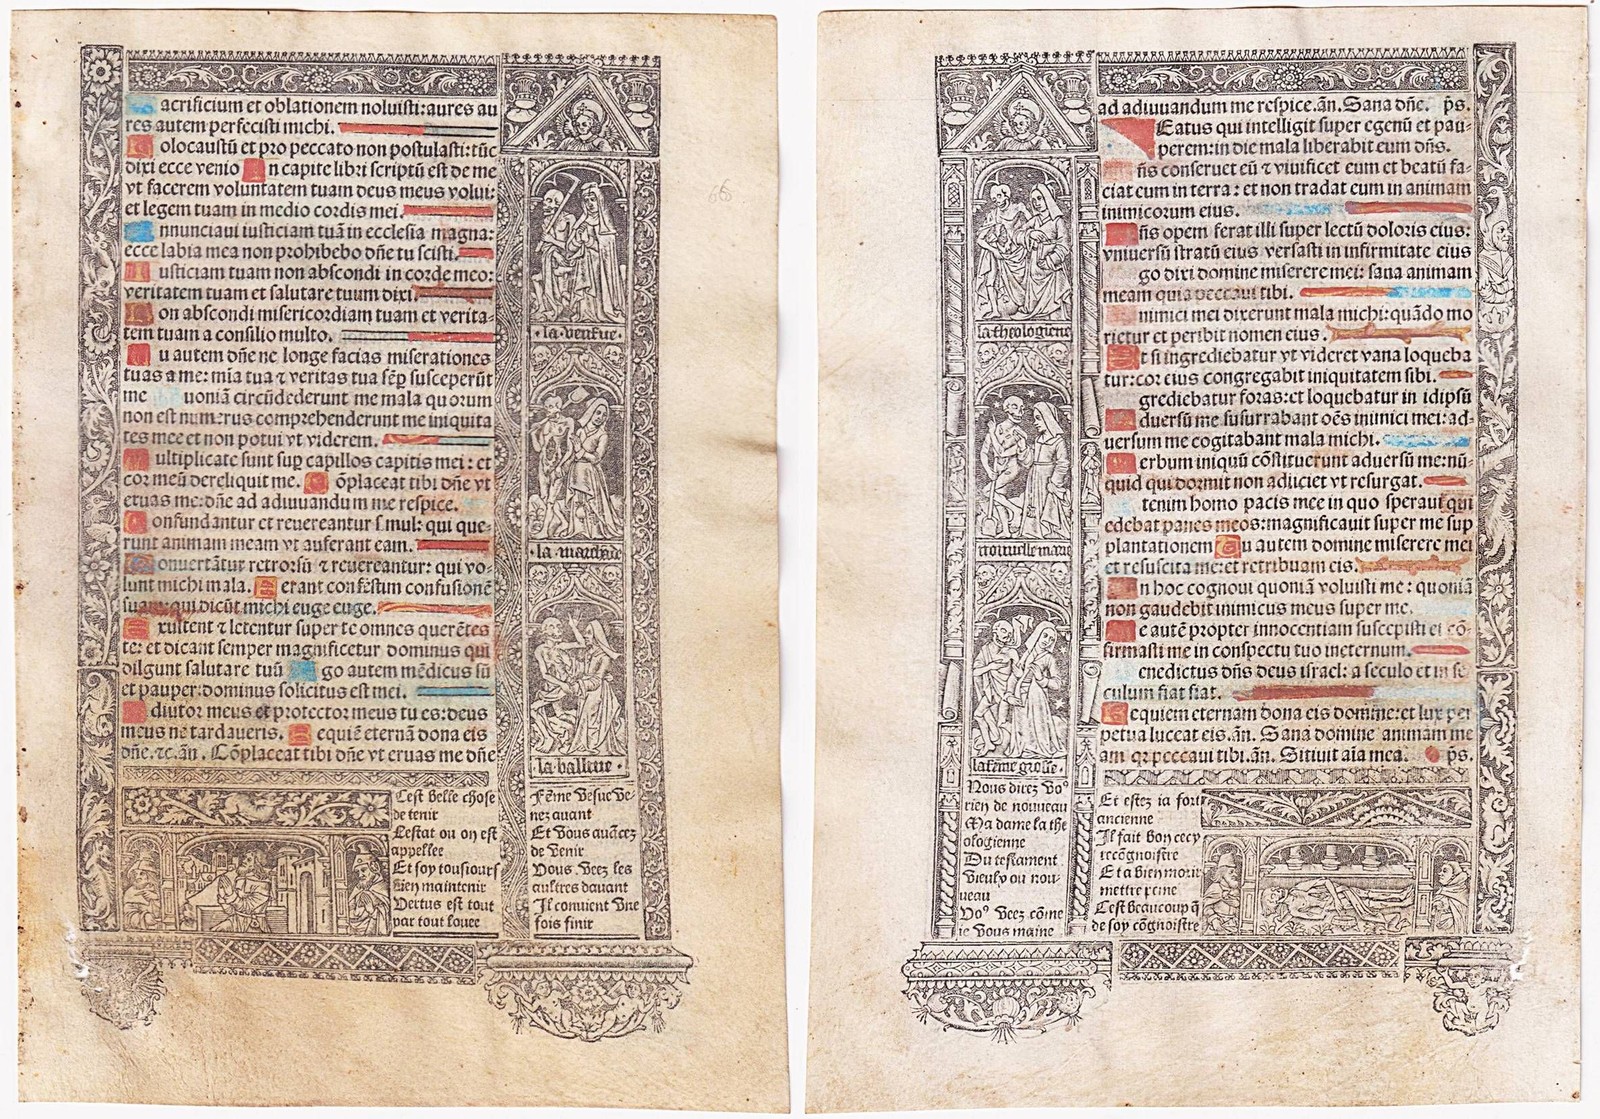 acrificium et oblationem noluisti: aures au
res autem perfecisti michi.
olocaustū et pro peccato non postulasti: tūc
dixi ecce venio In capite libri scriptū est de me
vt facerem voluntatem tuam deus meus volui:
et legem tuam in medio cordis mei.
nnunciaui iusticiam tuā in ecclesia magna:
ecce labia mea non prohibebo dñe tu scisti.
usticiam tuam non abscondi in corde meo:
veritatem tuam et salutare tuum dixi.
on abscondi misericordiam tuam et verita-
tem tuam a consilio multo.
u autem dñe ne longe facias miserationes
tuas a me: mīa tua ⁊ veritas tua sēp susceperūt
me uoniā circūdederunt me mala quorum
non est numerus comprehenderunt me iniquita
tes mee et non potui vt viderem.
ultiplicate sunt sup capillos capitis mei: et
cor meū dereliquit me. Cōplaceat tibi dñe vt
eruas me: dñe ad adiuuandum me respice.
Confundantur et reuereantur simul: qui que-
runt animam meam vt auferant eam.
Conuertātur retrorsū ⁊ reuereantur: qui vo-
lunt michi mala. Ferant confestim confusionē
suam: qui dicūt michi euge euge.
Exultent ⁊ letentur super te omnes querētes
te: et dicant semper magnificetur dominus qui
diligunt salutare tuū go autem mēdicus sū
et pauper: dominus solicitus est mei.
diutor meus et protector meus tu es: deus
meus ne tardaueris. Requiē eternā dona eis
dñe. ⁊c. añ. Cōplaceat tibi dñe vt eruas me dñe
66
.la.veufue.
.la marchāde
.la.baillиue.
Cest belle chose
de tenir
Lestat ou on est
appellee
Et soy tousiours
bien maintenir
Vertus est tout
par tout louee
Fēme vefue ve-
nez auant
Et vous auācez
de venir
Vous veez les
aultres dauant
Il conuient vne
fois finir
ad adiuuandum me respice. añ. Sana dñe. ps.
Eatus qui intelligit super egenū et pau-
perem: in die mala liberabit eum dñs.
ñs conseruet eū ⁊ viuificet eum et beatū fa-
ciat eum in terra: et non tradat eum in animam
inimicorum eius.
ñs opem ferat illi super lectū doloris eius:
vniuersū stratū eius versasti in infirmitate eius
go dixi domine miserere mei: sana animam
meam quia peccaui tibi.
nimici mei dixerunt mala michi: quādo mo
rietur et peribit nomen eius.
Et si ingrediebatur vt videret vana loqueba
tur: cor eius congregabit iniquitatem sibi.
grediebatur foras: et loquebatur in idipsū
duersū me susurrabant oēs inimici mei: ad-
uersum me cogitabant mala michi.
erbum iniquū cōstituerunt aduersū me: nū-
quid qui dormit non adiiciet vt resurgat.
tenim homo pacis mee in quo speraui qui
edebat panes meos: magnificauit super me sup
plantationem Tu autem domine miserere mei
et resuscita me: et retribuam eis.
In hoc cognoui quoniā voluisti me: quoniā
non gaudebit inimicus meus super me.
e autē propter innocentiam suscepisti et cō-
firmasti me in conspectu tuo ineternum.
enedictus dñs deus israel: a seculo et in se
culum fiat fiat.
Requiem eternam dona eis domine: et lux per
petua luceat eis. añ. Sana domine animam me
am qr peccaui tibi. añ. Sitiuit aīa mea. ps.
la theologiene
nouuelle mariee
la fēme grosse.
Nous direz vo⁹
rien de nouueau
Ma dame la the
ologienne
Du testament
vieulx ou nou-
ueau
Vo⁹ veez cōme
ie vous maine
Et estez ia fort
ancienne
Il fait bon cecy
recōgnoistre
Et a bien mourir
mettre peine
Cest beaucoup q̄
de soy cōgnoistre